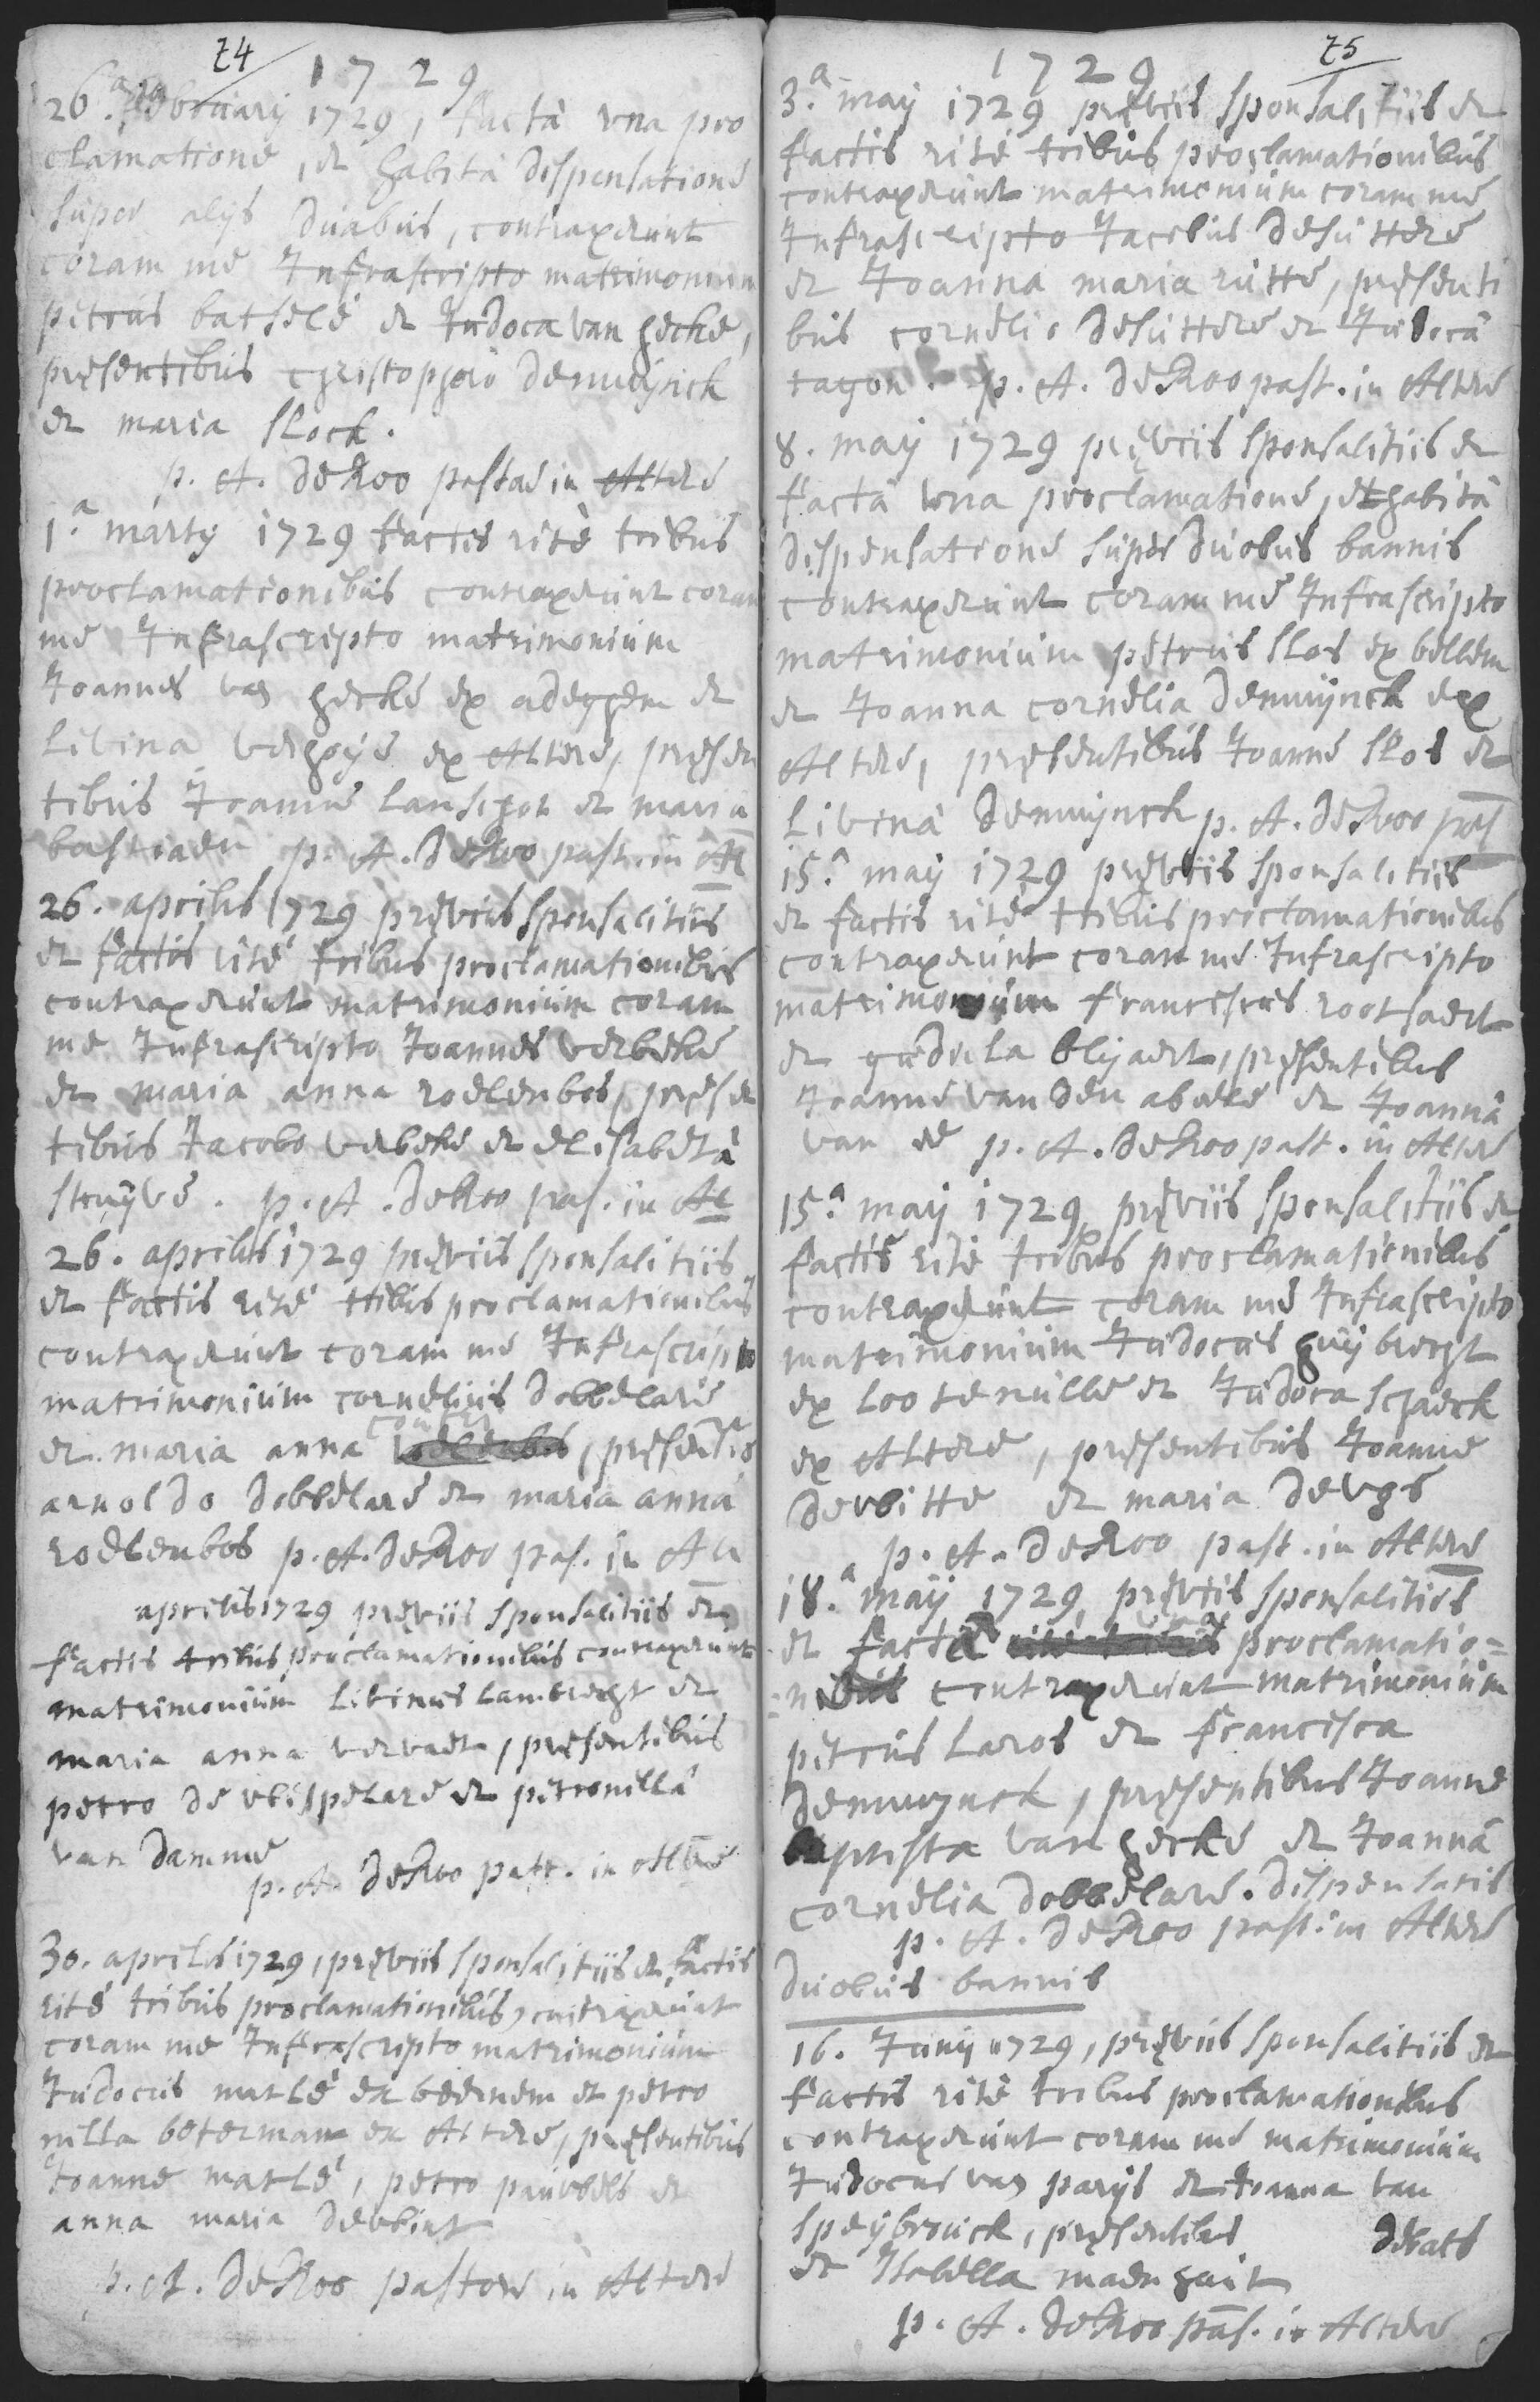 74
1729
26.a february 1729, factâ una pro
clamatione, et habitâ dispensatione
super alijs duabus, contraxerunt
coram me Infrascripto matrimonium
petrus batsele et Judoca van hecke,
presentibus christophoro demuÿnck
et maria slock.
p. A. DeRoo pastor in Altere
1.a martÿ 1729 factis ritè tribus
proclamationibus contraxerunt coram
me Infrascripto matrimonium
Joannes van hecke ex adeghem et
Livina verhoÿe ex Altere, presen
tibus Joanne Lanschot et maria
bastiaen p. A. DeRoo past. in Al
26. aprilis 1729 previis sponsalitiis
et factis ritè tribus proclamationibus
contraxerunt matrimonium coram
me Infrascripto Joannes verbeke
et maria anna roelenbos, presen
tibus Jacobo verbeke et elisabetâ
struÿve. p. A. DeRoo pas. in Al
26. aprilis 1729 previis sponsalitiis
et factis ritè tribus proclamationibus
contraxerunt coram me Infrascripto
matrimonium cornelius dobbelare
et maria anna , presentib
arnoldo dobbelare et maria annâ
roelenbos p. A. DeRoo pas. in Al
aprilis 1729 previis sponsalitiis et
factis tribus proclamationibus contraxerunt
matrimonium Livinus Lambrecht et
maria anna vervaet, presentibus
petro de vlispelare et petronillâ
van damme
p. A. DeRoo past. in Altere
30. aprilis 1729, previis sponsalitiis et factis
ritè tribus proclamationibus, contraxerunt
coram me Infrascripto matrimonium
Judocus matle ex beernem et petro
nilla beterman ex Altere, presentibus
Joanne matle, petro pauwels et
anna maria
p. A. DeRoo pastore in Altere
75
1729
3.a maÿ 1729 previis sponsalitiis et
factis ritè tribus proclamationibus
contraxerunt matrimonium coram me
Infrascripto Jacobus desuttere
et Joanna maria rutte, presenti
bus cornelio desuttere et Judocâ
tagon. p. A. DeRoo past. in Altere
8. maÿ 1729 previis sponsalitiis et
factâ una proclamatione, et habitâ
dispensatione super duobus bannis
contraxerunt coram me Infrascripto
matrimonium petrus slos ex bellem
et Joanna cornelia demuÿnck ex
Altere, presentibus Joanne slos et
Livinâ demuÿnck p. A. DeRoo pas
15.a maÿ 1729 previis sponsalitiis
et factis ritè tribus proclamationibus
contraxerunt coram me Infrascripto
matrimonium franciscus rootsaert
et gudula blijaert, presentibus
Joanne van den abeele et Joannâ
van ee p. A. DeRoo past. in Altere
15.a maÿ 1729, previis sponsalitiis et
factis ritè tribus proclamationibus
contraxerunt coram me Infrascripto
matrimonium Judocus huÿbrecht
ex Lootenulle et Judoca schaeck
ex Altere, presentibus Joanne
dewitte et maria devos
p. A. DeRoo past. in Altere
18.a maÿ 1729, previis sponsalitiis
et factâ proclamatio=
ne contraxerunt matrimonium
petrus Laros et francisca
demuynck, presentibus Joanne
baptista van hecke et Joannâ
cornelia dobbelare. dispensatis
p. A. DeRoo past. in Altere
duobus bannis
16. Junij 1729, previis sponsalitiis et
factis ritè tribus proclamationibus
contraxerunt coram me matrimonium
Judocus van parijs et Joanna van
speÿbrouck, presentibus debats
et Isabella maenhaut
p. A. DeRoo pas. in Altere